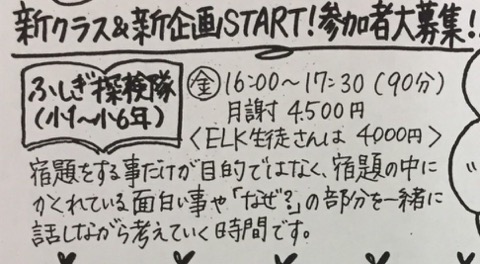 新クラス&新企画START!参加者大募集!!
ふしぎ探検隊
(小1~小6年)
金 16:00~17:30 (90分)
月謝 4.500円
<ELK生徒さんは 4000円>
宿題をする事だけが目的ではなく、宿題の中に
かくれている面白い事や「なぜ?」の部分を一緒に
話しながら考えていく時間です。